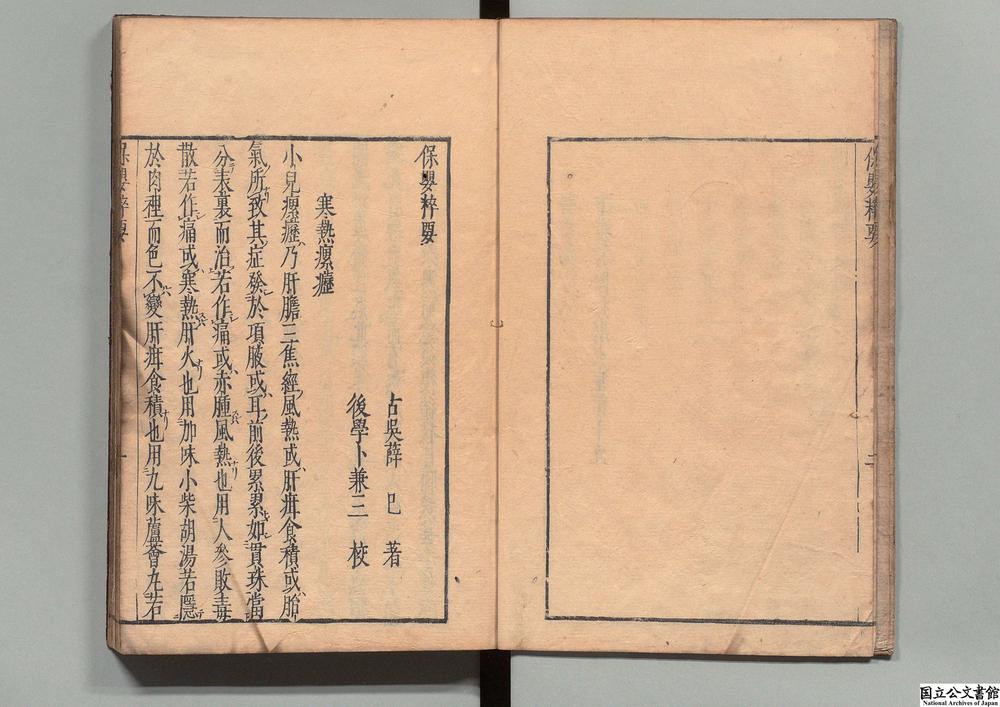 保嬰粹要
保嬰粹要
古吳薛 己 著
後學卜兼三 校
寒熱瘰癧
小兒瘰癧乃肝膽三焦經風熱或肝疳食積或胎
氣所致其症發於項腋或耳前後累累如貫珠當
分表裏而治若作痛或赤腫風熱也用人參敗毒
散若作痛或寒熱肝火也用加味小柴胡湯若隱
於肉裡而色不變肝疳食積也用九味蘆薈丸若
保嬰粹要
一
国立公文書館
National Archives of Japan